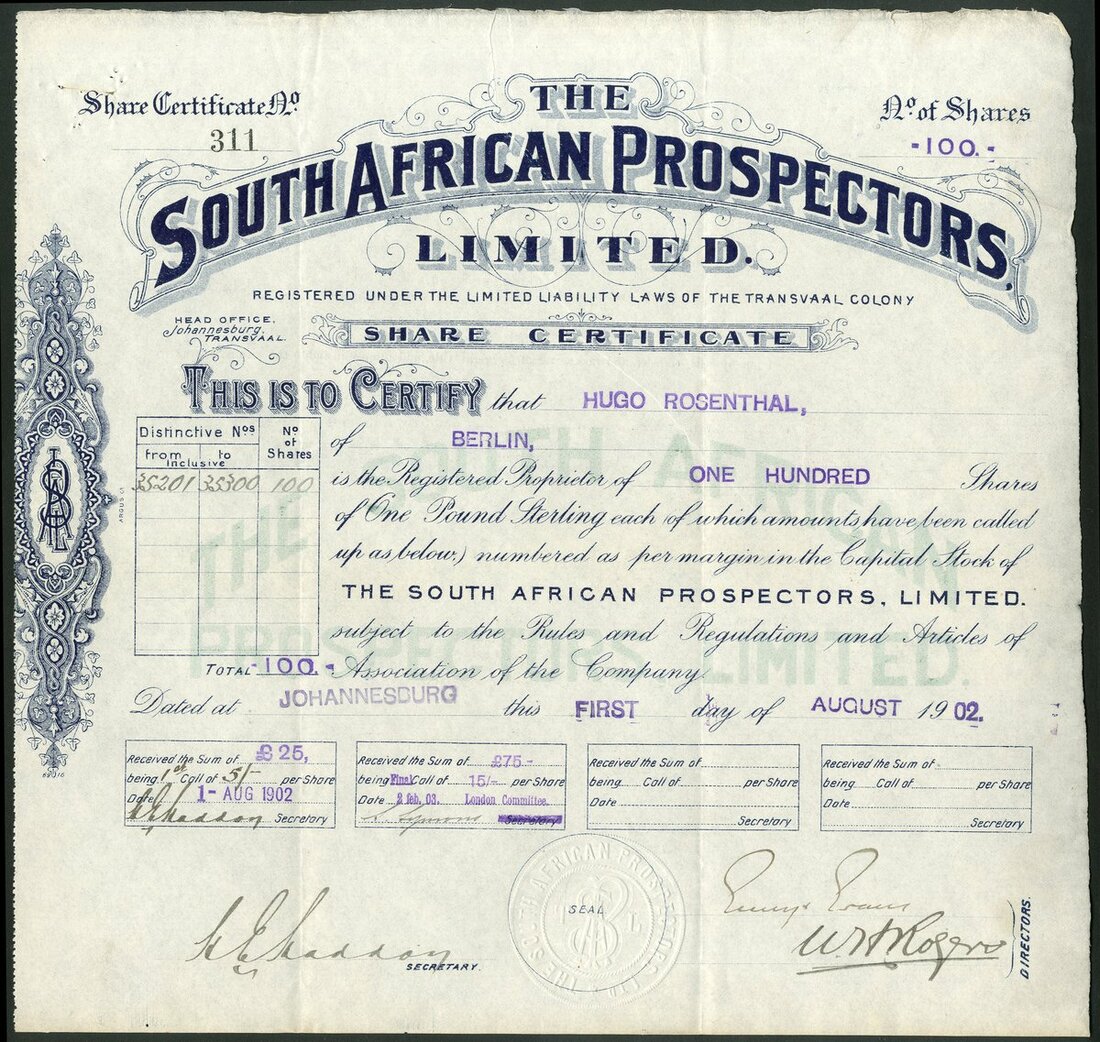 Share Certificate No.
311
No. of Shares
-100.-
THE
SOUTH AFRICAN PROSPECTORS,
LIMITED.
REGISTERED UNDER THE LIMITED LIABILITY LAWS OF THE TRANSVAAL COLONY
HEAD OFFICE,
Johannesburg,
TRANSVAAL.
SHARE CERTIFICATE
THIS IS TO CERTIFY that HUGO ROSENTHAL,
of BERLIN,
is the Registered Proprietor of ONE HUNDRED Shares
of One Pound Sterling each (of which amounts have been called
up as below) numbered as per margin in the Capital Stock of
THE SOUTH AFRICAN PROSPECTORS, LIMITED.
subject to the Rules and Regulations and Articles of
Association of the Company
Distinctive Nos No of Shares
from to
inclusive
35201 35300 100
TOTAL -100.-
THE SOUTH AFRICAN
PROSPECTORS LIMITED.
Dated at JOHANNESBURG this FIRST day of AUGUST 1902.
Received the Sum of £25,
being 1st Call of 5/- per Share
Date 1- AUG 1902
Secretary
Received the Sum of £75-
being Final Call of 15/- per Share
Date 2 feb. 03. London Committee.
Secretary
Received the Sum of
being Call of per Share
Date
Secretary
Received the Sum of
being Call of per Share
Date
Secretary
SEAL
THE SOUTH AFRICAN PROSPECTORS LTD
SECRETARY.
W. H. Rogers
DIRECTORS.
ARGUS